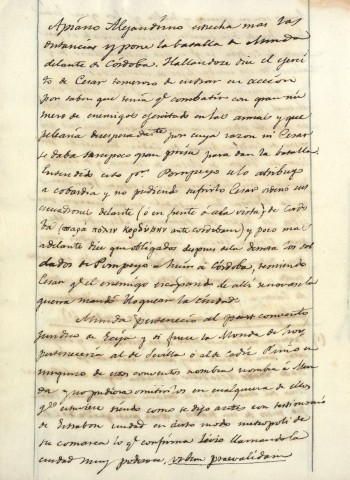 Apiano Alejandrino estrecha mas las
distancias y pone la batalla de Munda
delante de Córdoba. Hallandose dice el egerci
to de Cesar temeroso de entrar en accion
por saber que tenia q.e combatir con gran nu
mero de enemigos egercitado en las armas y que
pelearia desesperadam.te por cuya razon ni Cesar
se daba tampoco gran prisa para dar la batalla.
Entendido esto p.r Pompeyo se lo atribuyo
a cobardia y no pudiendo sufrirlo Cesar ordenó sus
escuadrones delante (ó en frente ó a la vista) de Cordo
ba (παρὰ πόλιν Κορδύβην ante cordubam) y poco mas
adelante dice que obligados despues de la derrota los sol
dados de Pompeyo a huir á Córdoba, temiendo
Cesar q.e el enemigo escapando de alli renovase la
guerra mandó bloquear la ciudad.
Munda perteneció al convento
juridico de Ecija y si fuese la Monda de hoy
perteneceria al de Sevilla ó al de Cadiz. Plinio en
ninguno de estos conventos nombra á Mun
da y no pudiera omitirlos en cualquiera de ellos
q.e estuviese siendo como se dijo antes con testimonio
de Strabon ciudad en cierto modo metropoli de
su comarca lo q.e confirma Livio llamandola
ciudad muy poderosa, urbem praevalidam